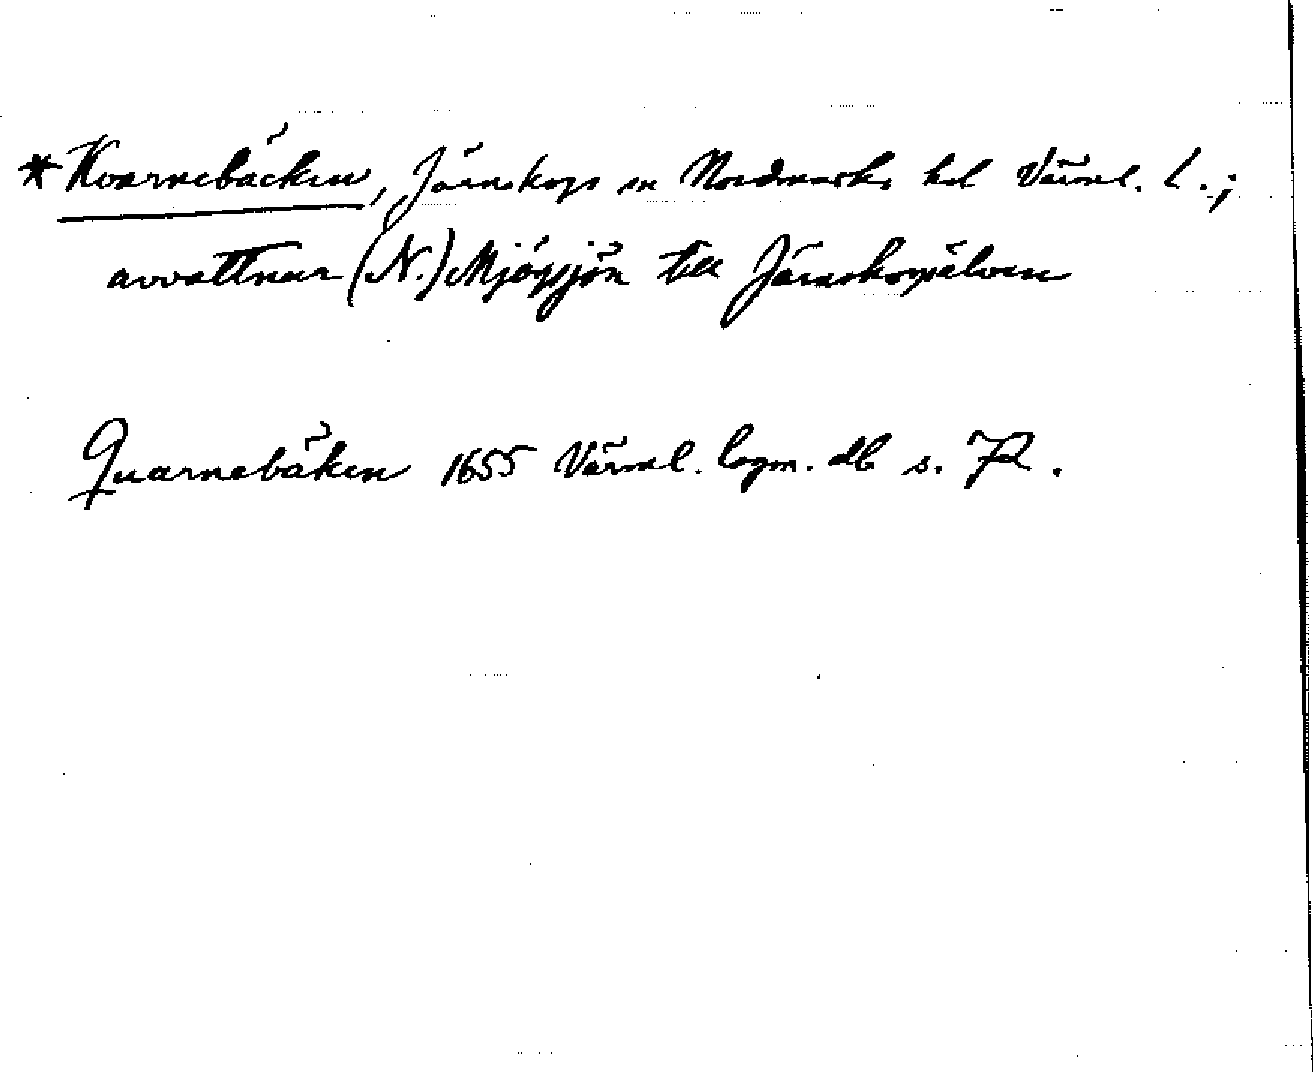 *Kvarnebäcken, Järnskogs sn Nordmarks hd Värml. l.;
avvattnar (N.) Mjögsjön till Järnskogsälven
Quarnebäken 1655 Värml. lagm. db s. 72.